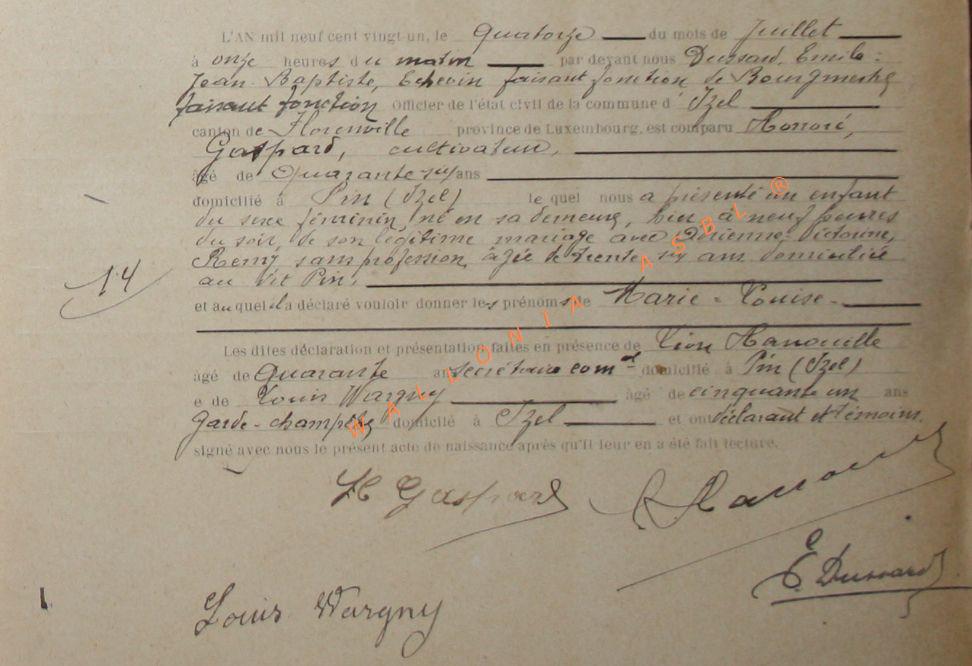 L'AN mil neuf cent vingt-un, le Quatorze du mois de Juillet
à onze heures du matin par devant nous Dussard, Emile-
Jean-Baptiste, Echevin faisant fonction de Bourgmestre
faisant fonction Officier de l'état civil de la commune d' Izel
canton de Florenville province de Luxembourg, est comparu Honoré,
Gaspard, cultivateur,
âgé de Quarante-six ans
domicilié à Pin (Izel) le quel nous a présenté un enfant
du sexe féminin, né en sa demeure, hier à neuf heures
du soir, de son légitime mariage avec Adrienne-Victorine,
Remy sans profession, âgée de trente six ans domiciliée
au dit Pin,
14
et auquel il a déclaré vouloir donner les prénoms de Marie-Louise-
Les dites déclaration et présentation faites en présence de Léon Hanouille
âgé de Quarante ans secrétaire com^al domicilié à Pin (Izel)
e de Louis Wargny âgé de cinquante un ans
garde-champêtre domicilié à Izel et ont déclarant et témoins
signé avec nous le présent acte de naissance après qu'il leur en a été fait lecture.
H Gaspard
E. Dussard
Louis Wargny
WALLONIA ASBL ®